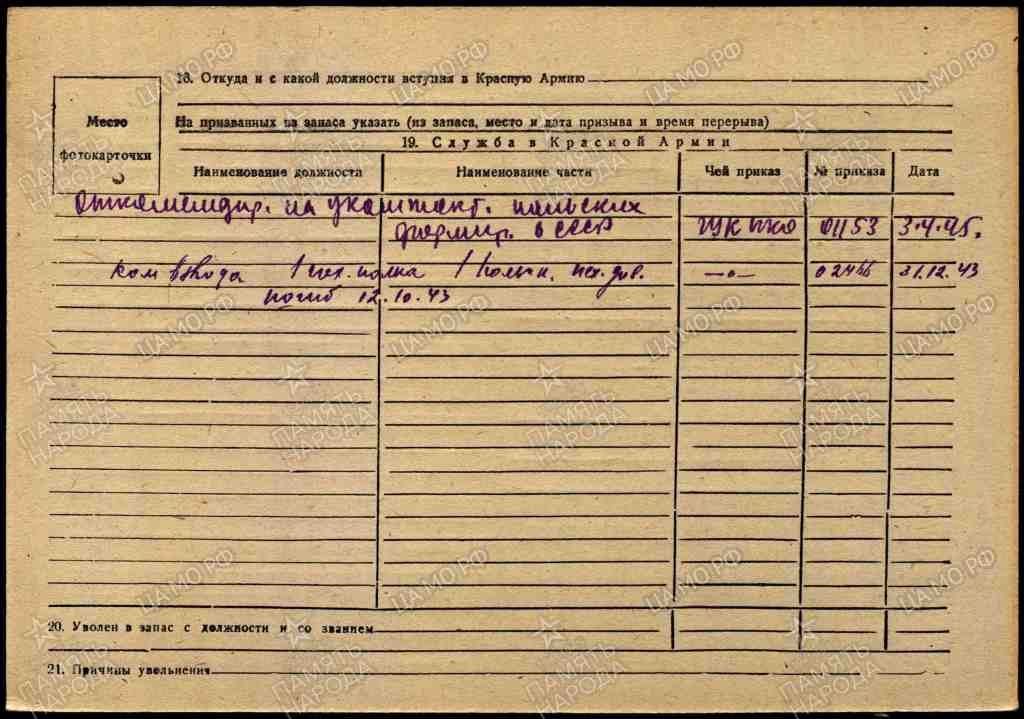 18. Откуда и с какой должности вступил в Красную Армию
Место
фотокарточки
На призванных из запаса указать (из запаса, место и дата призыва и время перерыва)
19. Служба в Красной Армии
Наименование должности Наименование части Чей приказ № приказа Дата
Откомандир. на укомплект. польских
формир. в СССР ГУК НКО 01153 3.4.45.
Ком взвода 1 пех. полка 1 польск. пех. див. —"— 02466 31.12.43
погиб 12.10.43
20. Уволен в запас с должности и со званием
21. Причины увольнения
ЦАМО.РФ
ПАМЯТЬ
НАРОДА